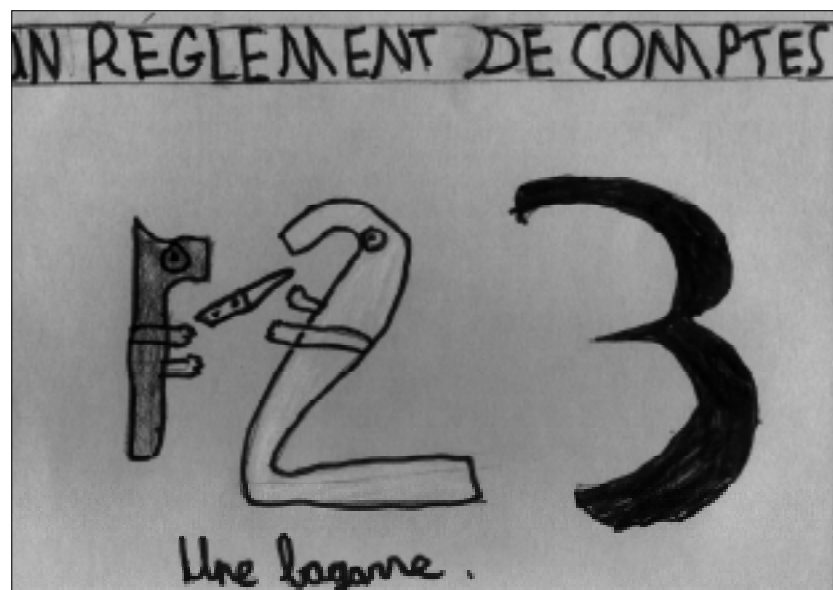 UN RÉGLEMENT DE COMPTES
1 2 3
Une bagarre.